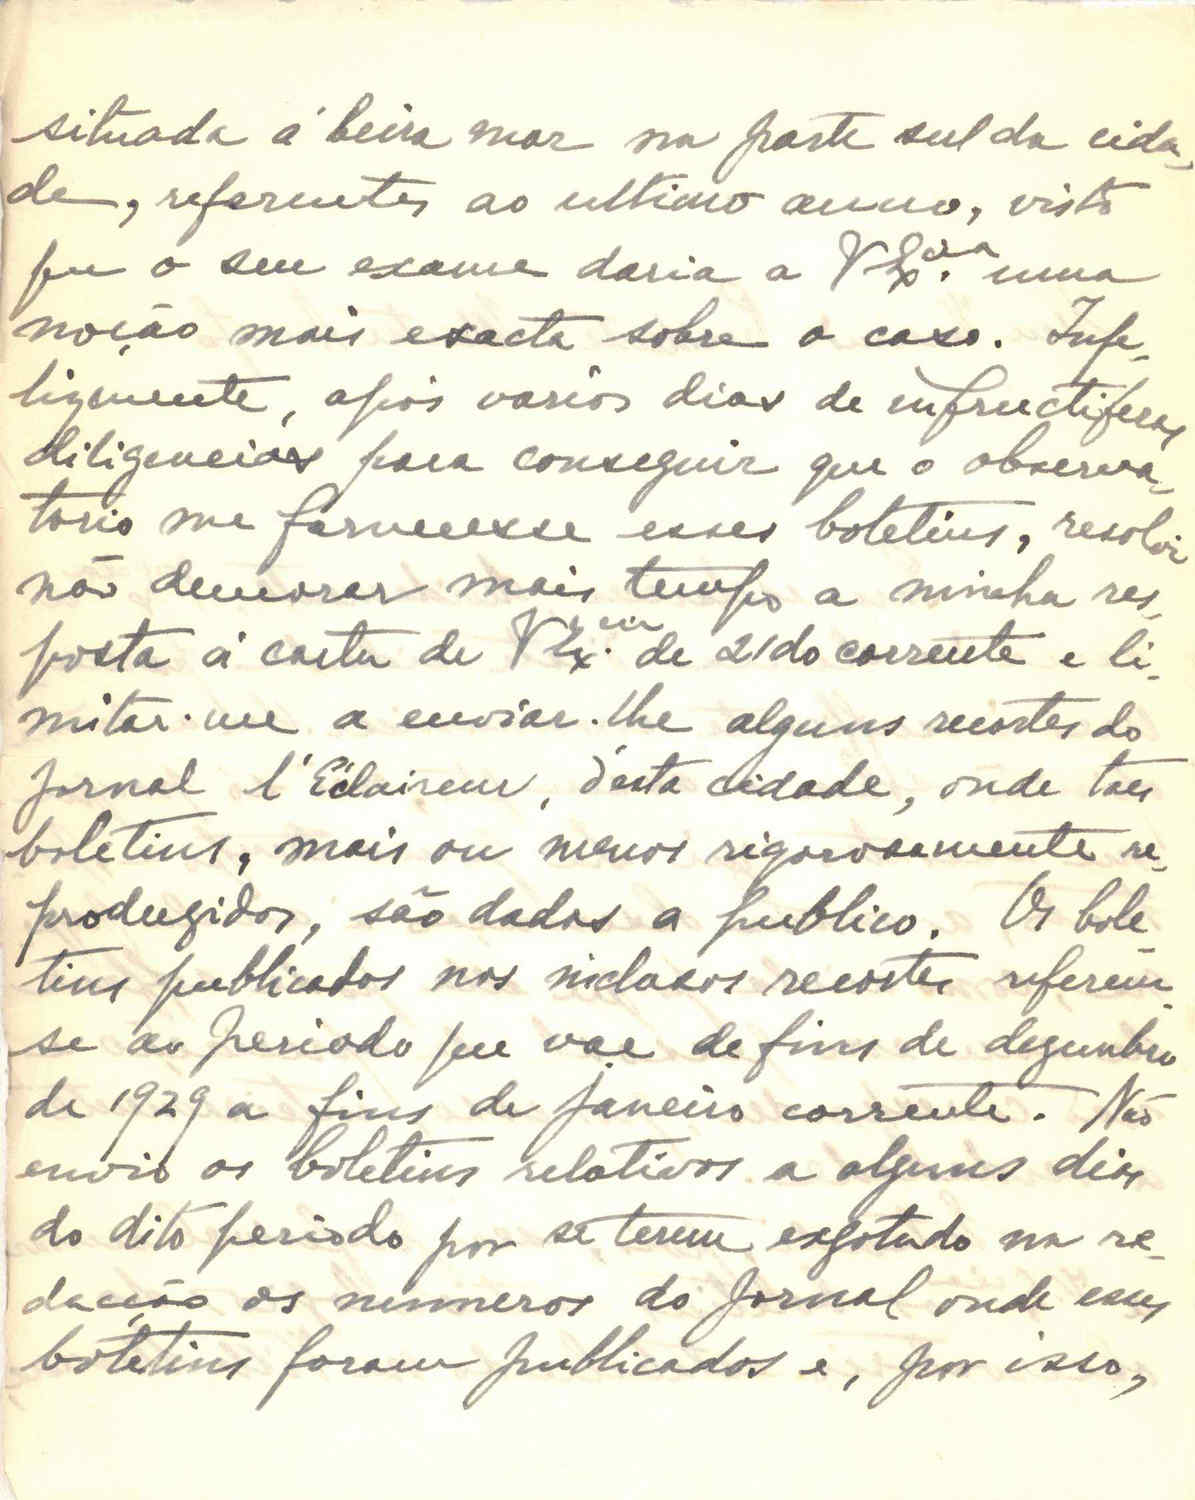 situada á beira mar na parte sul da cida-
de, referentes ao ultimo anno, visto
que o seu exame daria a V Ex.cia uma
noção mais exacta sobre o caso. Infe-
lizmente, após varios dias de infructiferas
diligencias para conseguir que o observa-
torio me fornecesse esses boletins, resolvi
não demorar mais tempo a minha res-
posta á carta de V Ex.cia de 21 do corrente e li-
mitar-me a enviar-lhe alguns recortes do
jornal l'Eclaireur, d'esta cidade, onde taes
boletins, mais ou menos rigorosamente re-
produzidos, são dados a publico. Os bole-
tins publicados nos inclusos recortes referem-
se ao periodo que vae de fins de dezembro
de 1929 a fins de janeiro corrente. Não
envio os boletins relativos a alguns dias
do dito periodo por se terem esgotado na re-
dacção os numeros do jornal onde esses
boletins foram publicados e, por isso,